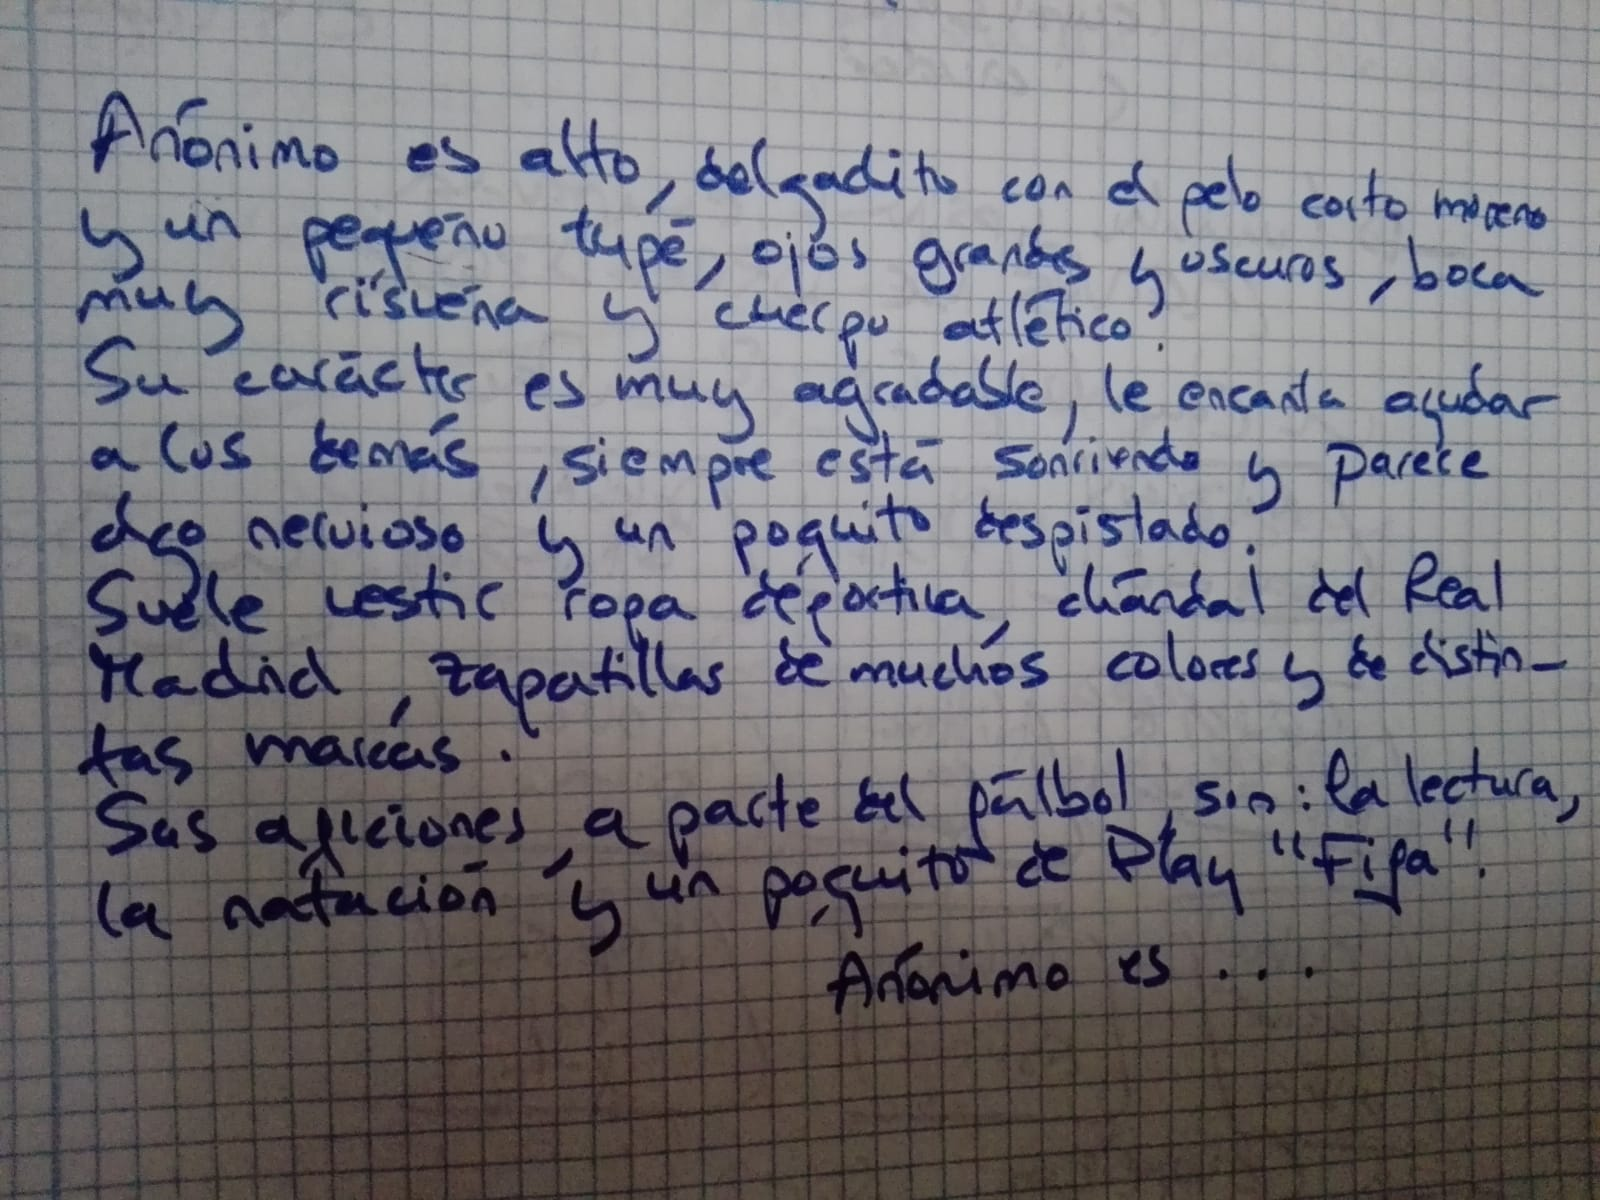 Anónimo es alto, delgadito con el pelo corto moreno
y un pequeño tupé, ojos grandes y oscuros, boca
muy risueña y cuerpo atlético.
Su carácter es muy agradable, le encanta ayudar
a los demás, siempre está sonriendo y parece
algo nervioso y un poquito despistado.
Suele vestir ropa deportiva, chándal del Real
Madrid, zapatillas de muchos colores y de distin-
tas marcas.
Sus aficiones, a parte del fútbol, son: la lectura,
la natación y un poquito de Play "Fifa".
Anónimo es ...